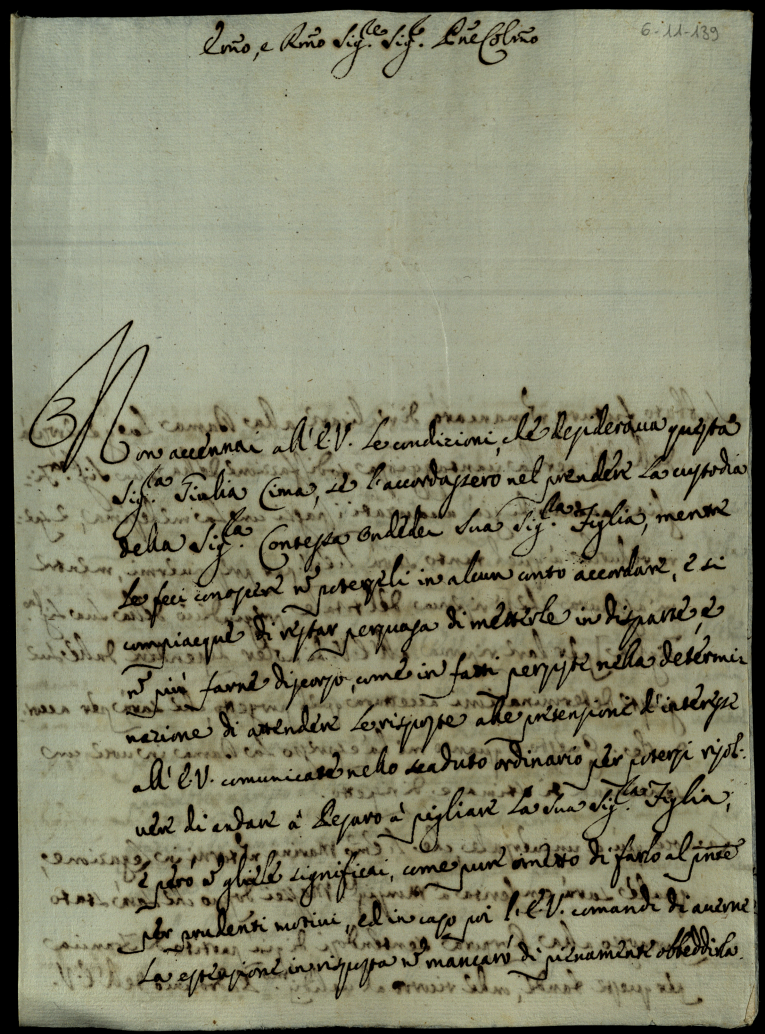 6-11-139
Emõ, e Rmõ Sig.re Sig.re Pñe Colmõ
Non accennai all'E.V. le condizioni, che desiderava questa
Sig.ra Giulia Cima, se l'accordassero nel prendere la custodia
della Sig.ra Contessa Ondedei sua Sig.ra Figlia, mentre
le feci conoscere nõ potergli in alcun conto accordare, e si
compiacque di restar persuasa di metterle in disparte, e
nõ più farne discorso, come in fatti persiste nella determi-
nazione di attendere le risposte alle pretensioni d'interesse
all'E.V. comunicate nello scaduto ordinario per potersi risol-
vere di andare à Pesaro à pigliare la sua Sig.ra Figlia,
e però nõ gliele significai, come pure ometto di farlo al pñte
per prudenti motivi, ed in caso poi l'E.V. comandi di averne
la espressione in risposta nõ mancarò di pienamente obbedirla.